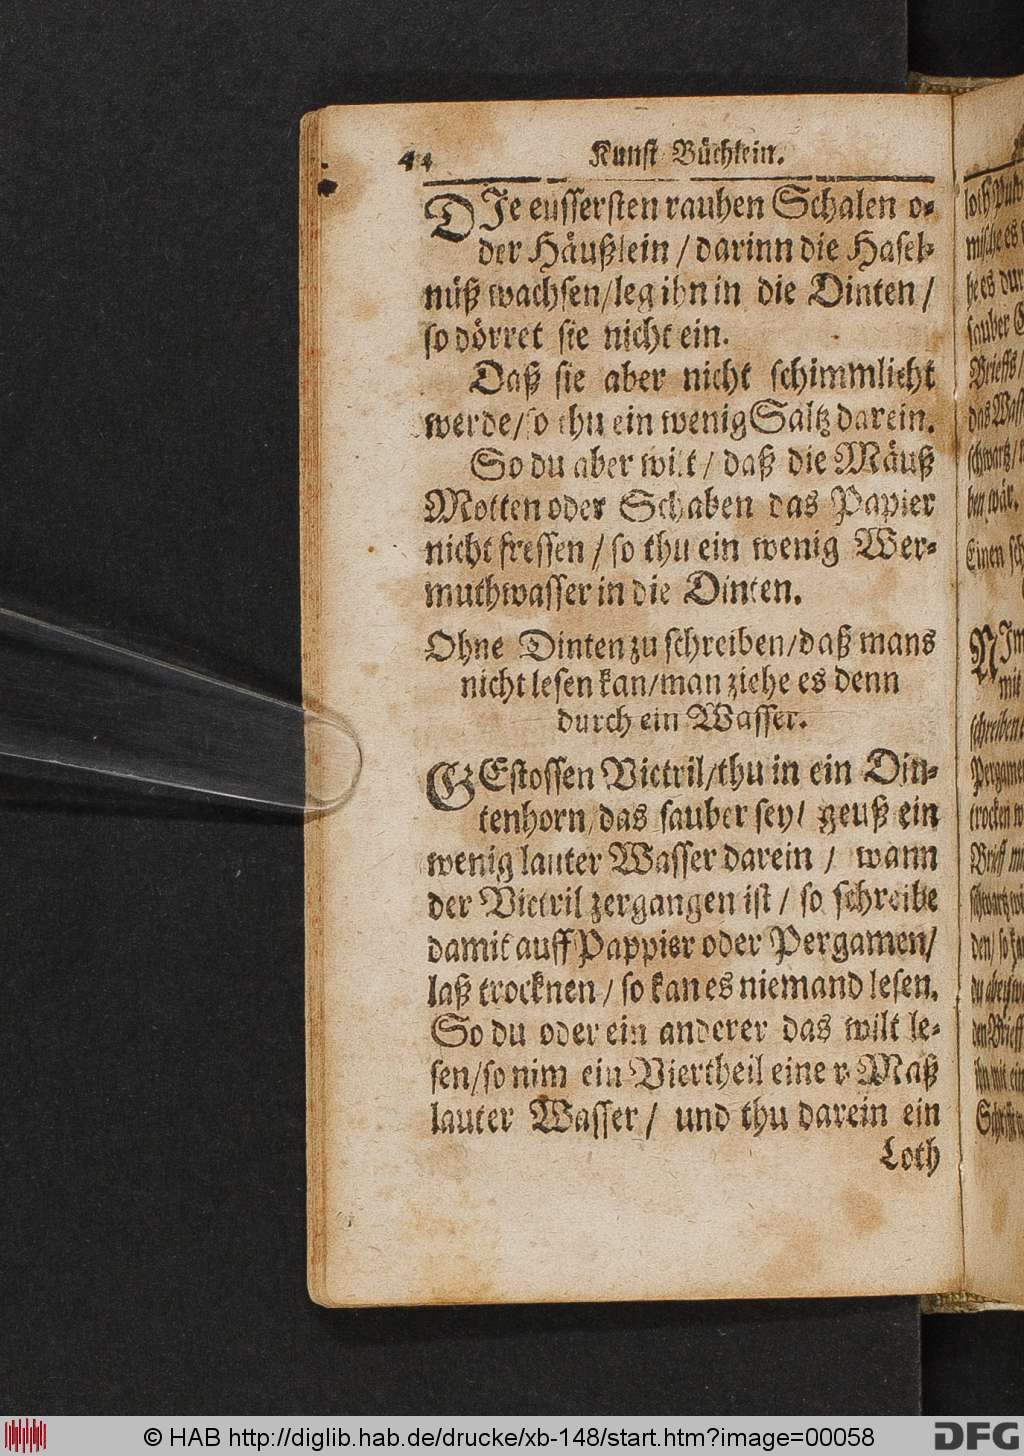 44 Kunst Büchlein.
DJe eussersten rauhen Schalen o-
der Häußlein / darinn die Hasel-
nüß wachsen/leg ihn in die Dinten /
so dörret sie nicht ein.
Daß sie aber nicht schimmlicht
werde/so thu ein wenig Saltz darein.
So du aber wilt / daß die Mäuß
Motten oder Schaben das Papier
nicht fressen / so thu ein wenig Wer-
muthwasser in die Dinten.
Ohne Dinten zu schreiben/daß mans
nicht lesen kan/man ziehe es denn
durch ein Wasser.
GEstossen Victril/thu in ein Din-
tenhorn/das sauber sey/ geuß ein
wenig lauter Wasser darein / wann
der Victril zergangen ist / so schreibe
damit auff Pappier oder Pergamen/
laß trocknen / so kan es niemand lesen.
So du oder ein anderer das wilt le-
sen/so nim ein Viertheil einer Maß
lauter Wasser / und thu darein ein
Loth
loth
mische es
he es
sauber
Brieffs/
das
schwartz/
ben wär.
Einen
NIm
mit
schreiben
trocken
Brieff
den/
du aber
den Brieff
© HAB http://diglib.hab.de/drucke/xb-148/start.htm?image=00058
DFG